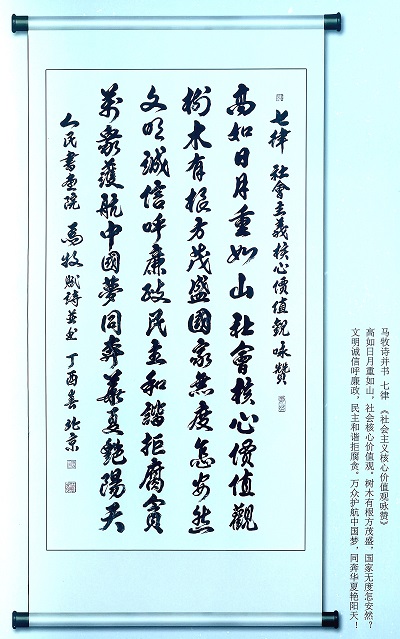 马牧诗并书 七律 《社会主义核心价值观咏赞》
高如日月重如山，社会核心价值观。树木有根方茂盛，国家无度怎安然？
文明诚信呼廉政，民主和谐拒腐贪。万众护航中国梦，同奔华夏艳阳天！
七律 社會主義核心價值觀咏贊
高如日月重如山社會核心價值觀
树木有根方茂盛國家無度怎安然
文明誠信呼廉政民主和諧拒腐貪
萬衆護航中國夢同奔華夏艷陽天
人民書畫院 馬牧賦詩並书 丁酉春北京